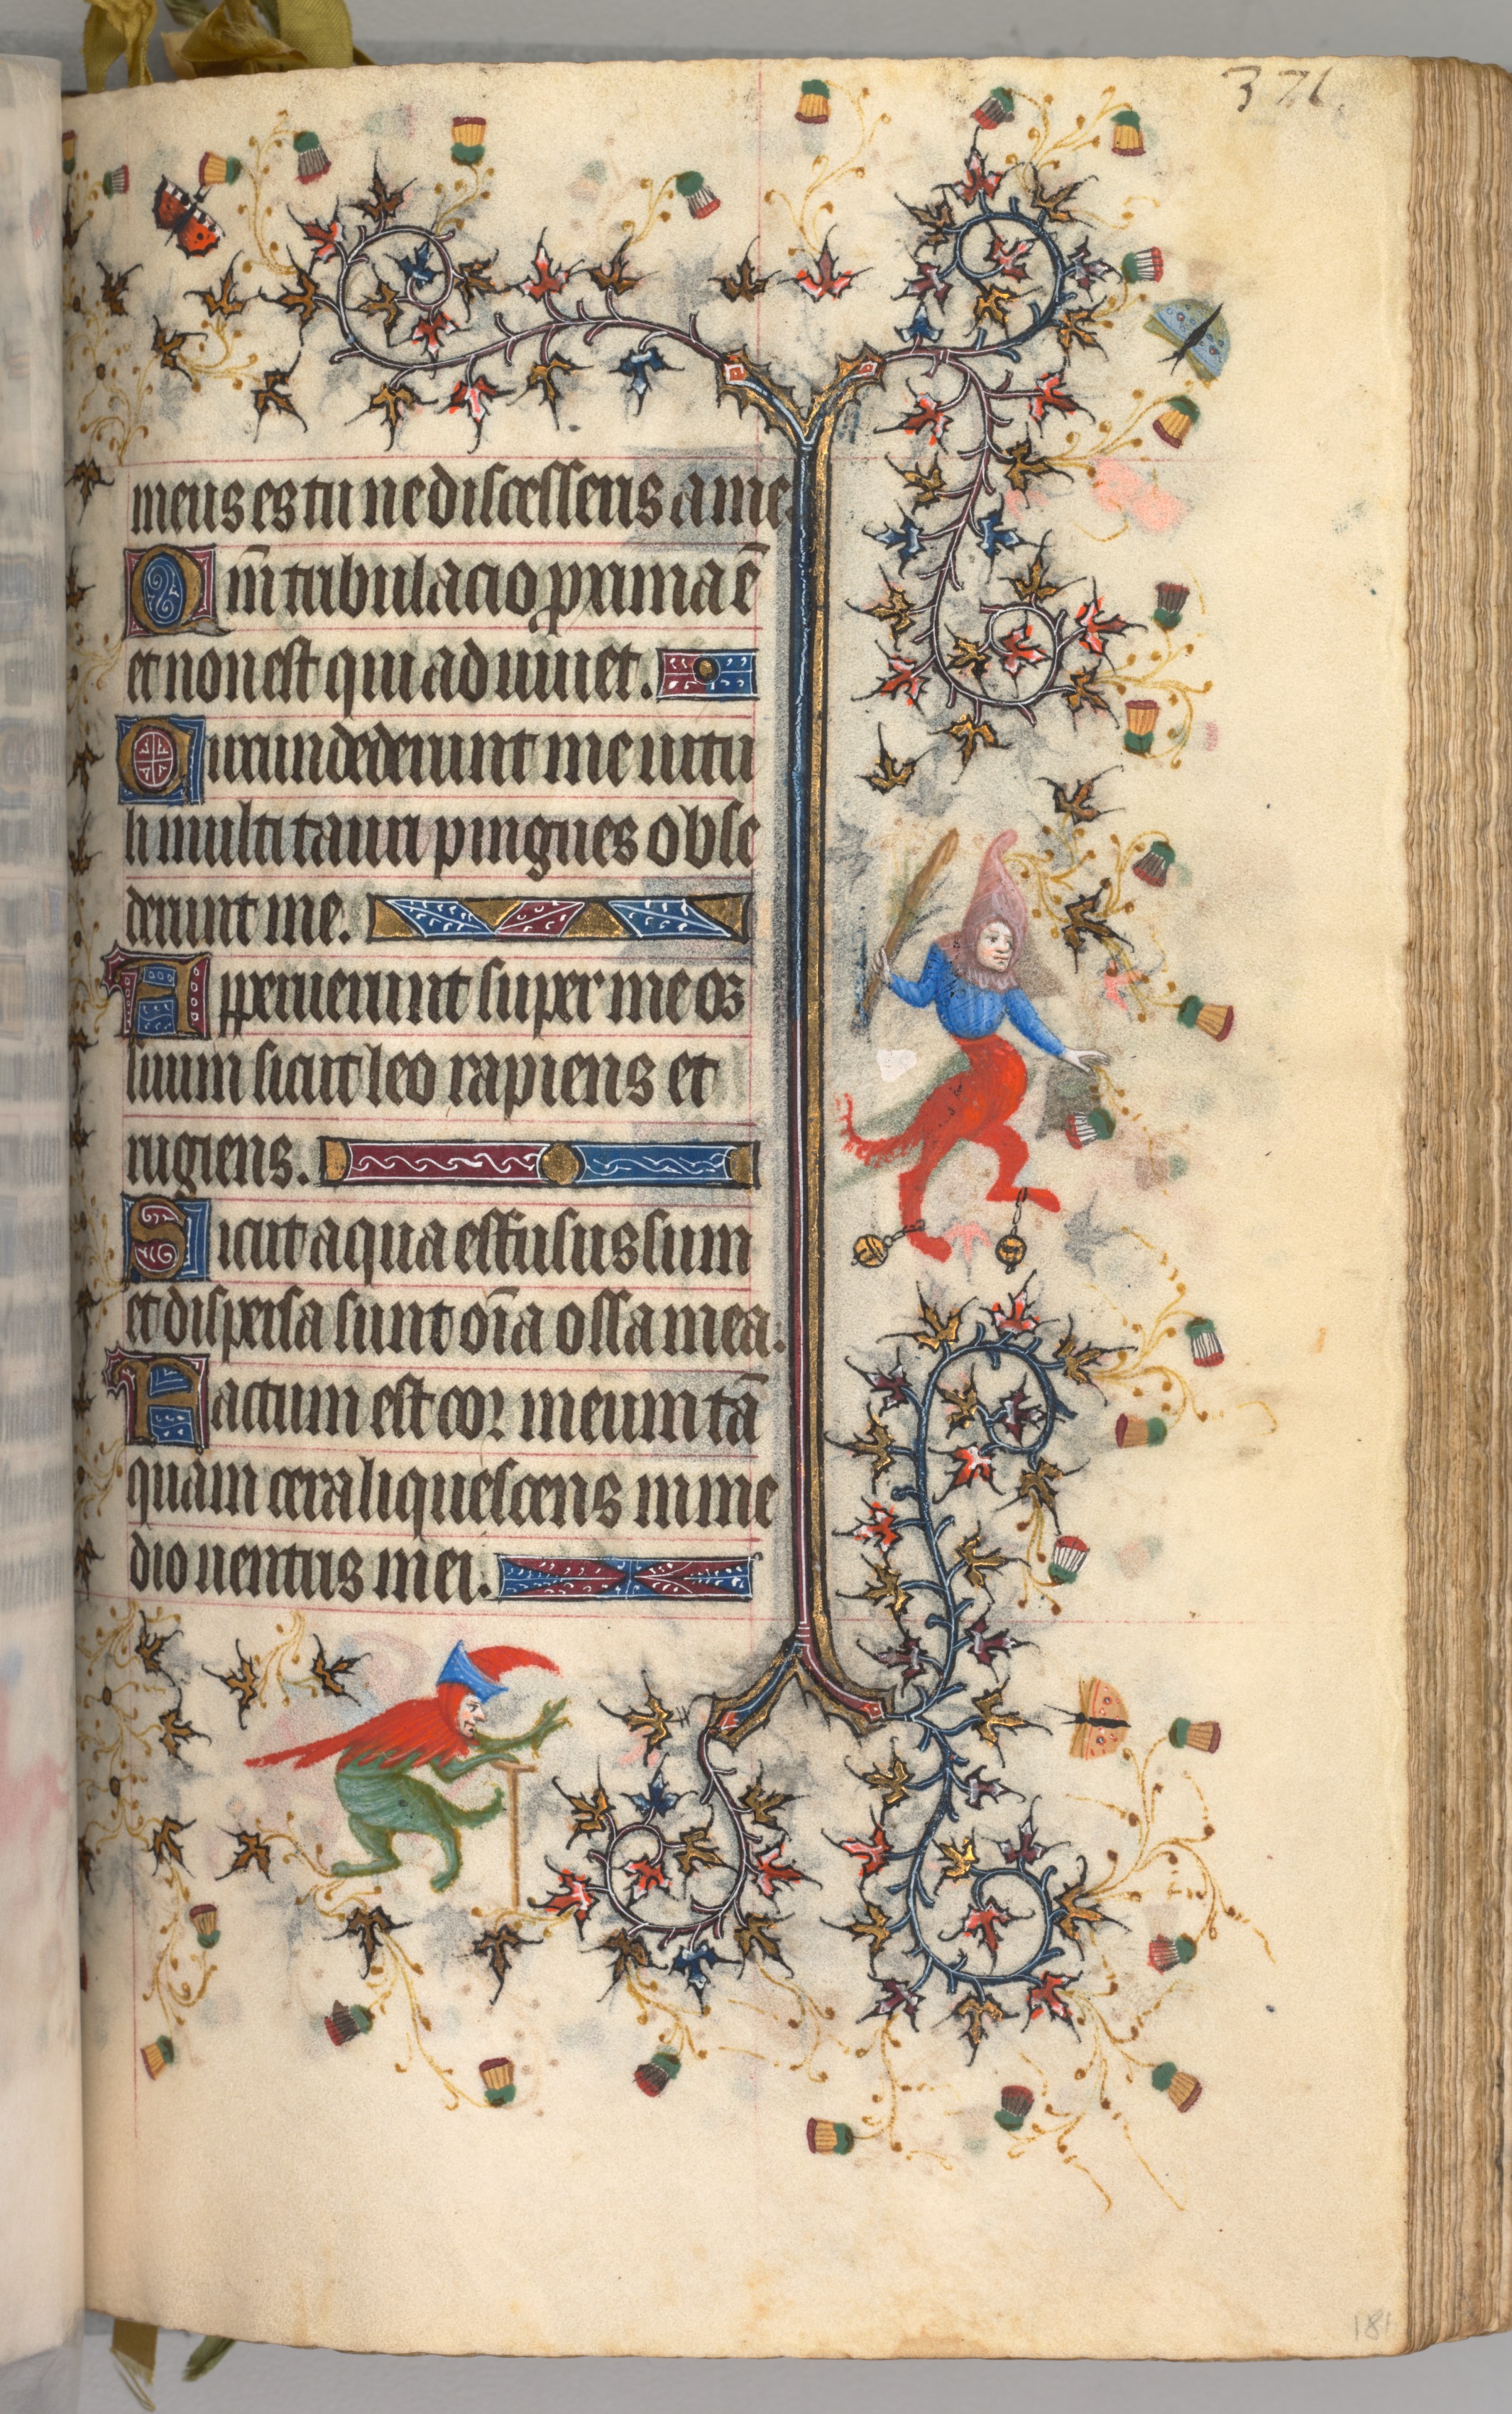 371.
meus es tu ne discesseris a me.
Qm̄ tribulacio proxima ē
et non est qui adiuuet.
Circundederunt me uitu
li multi tauri pingues obse
derunt me.
Apperuerunt super me os
suum sicut leo rapiens et
rugiens.
Sicut aqua effusus sum
et dispersa sunt oīa ossa mea.
Factum est cor meum tā
quam cera liquescens in me
dio uentris mei.
181